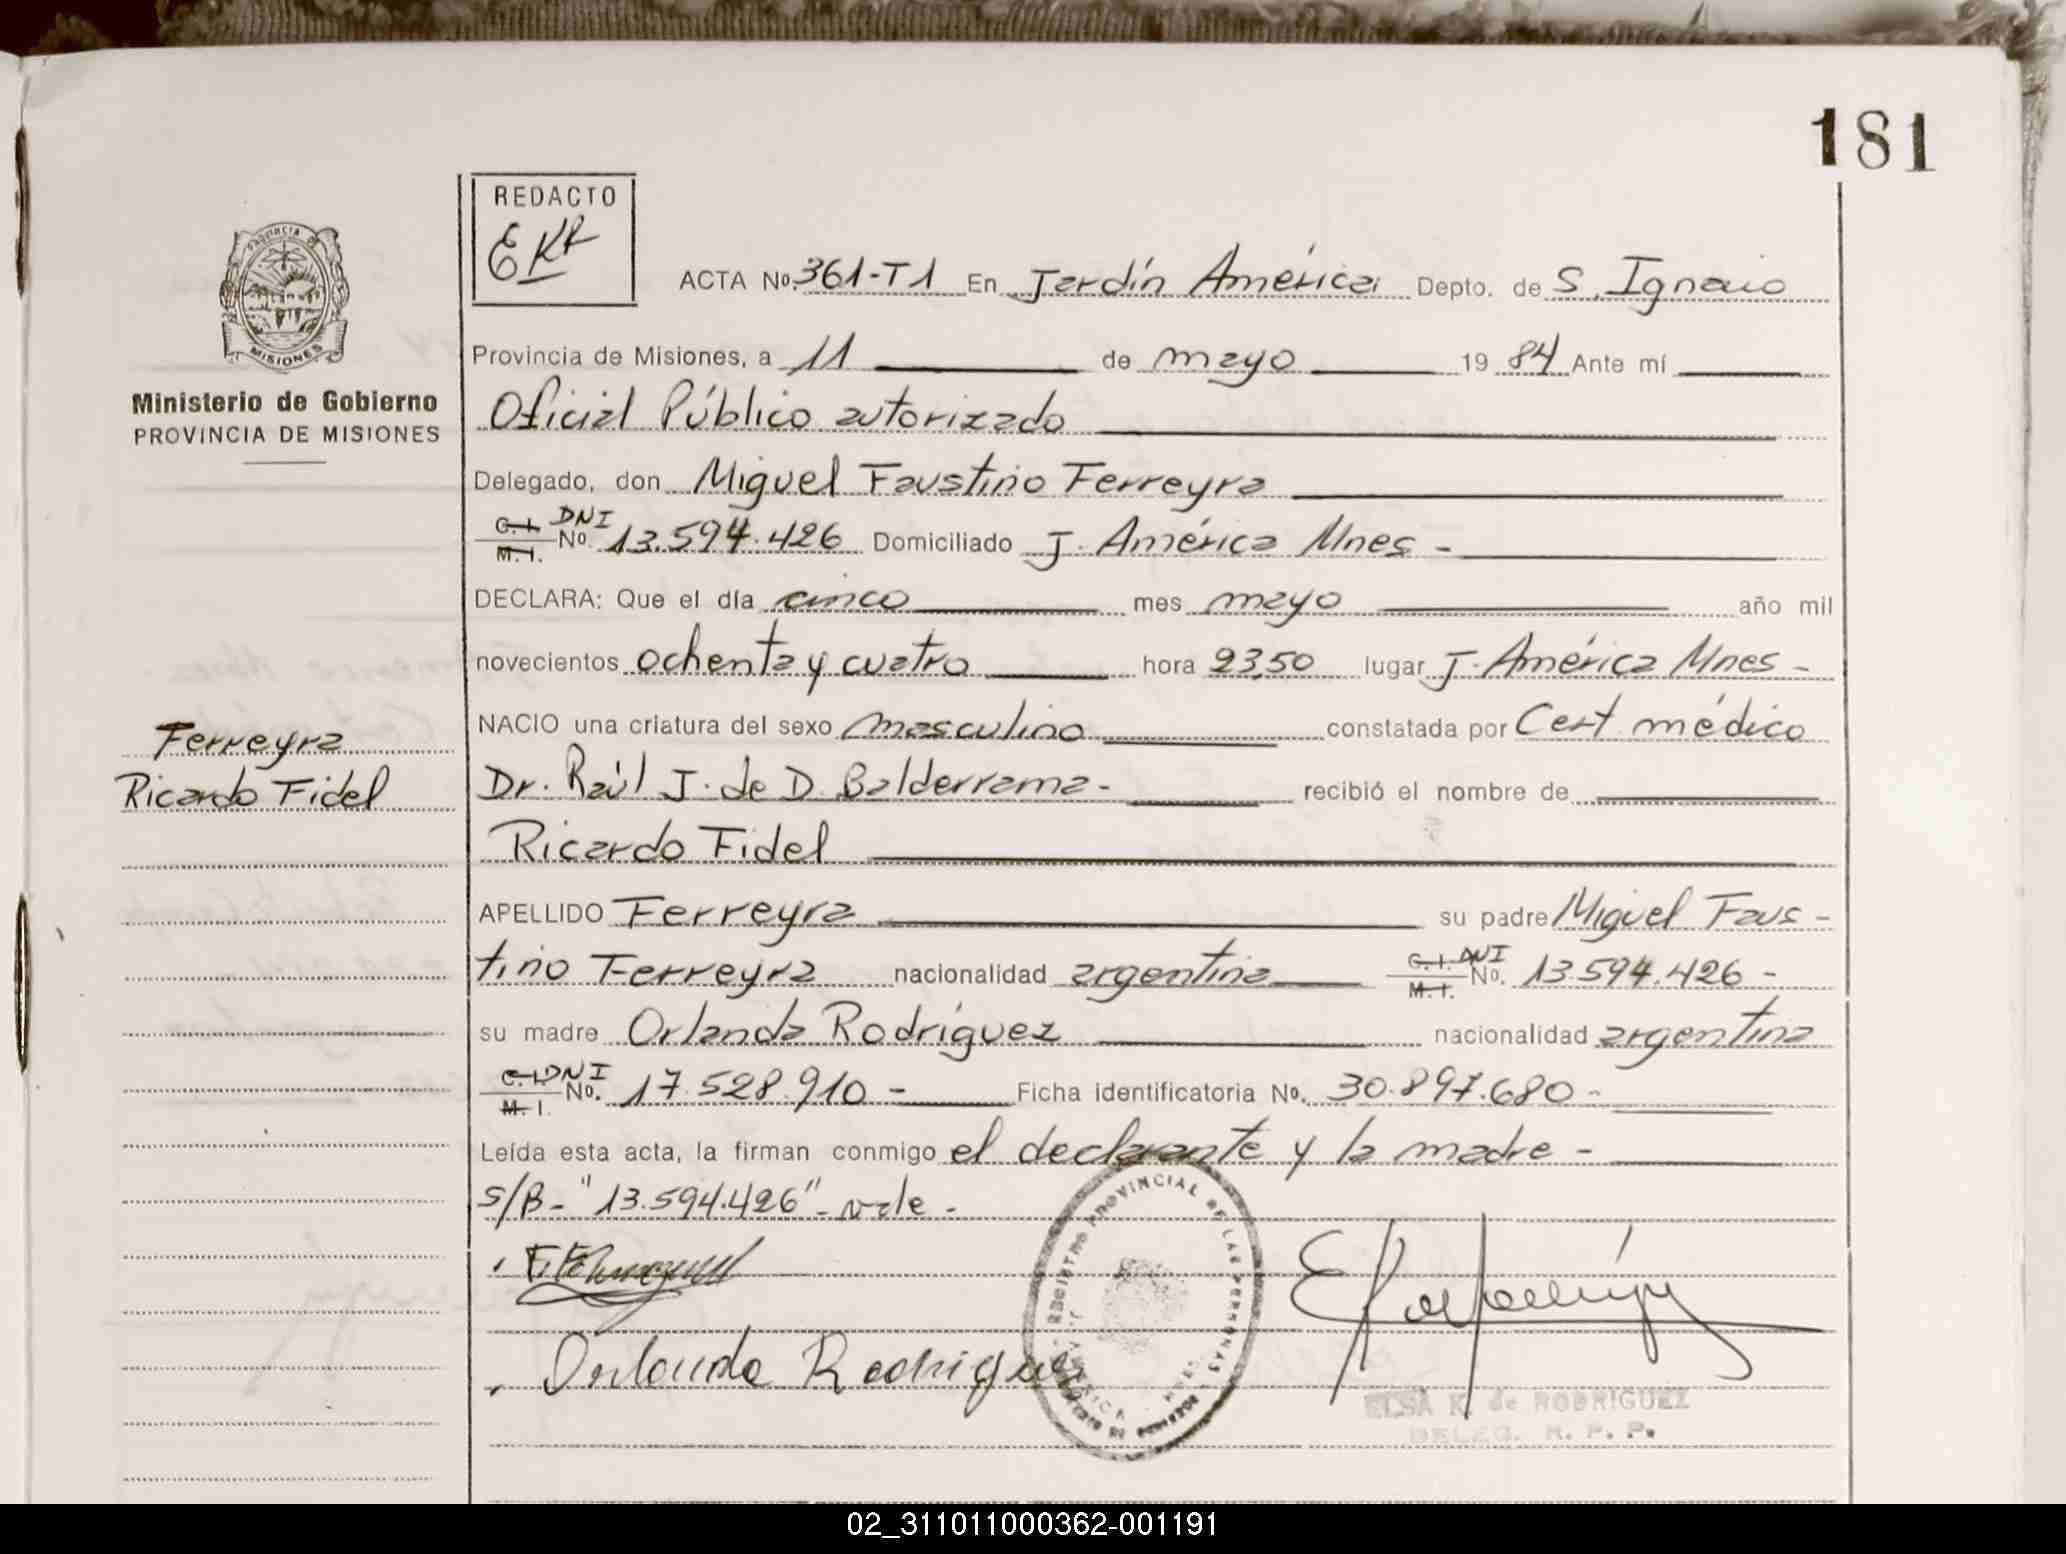 181
REDACTO
EKR
PROVINCIA DE
MISIONES
Ministerio de Gobierno
PROVINCIA DE MISIONES
ACTA No. 361-T1 En Jardín América Depto. de S. Ignacio
Provincia de Misiones, a 11 de mayo 19 84 Ante mí
Oficial Público autorizado
Delegado, don Miguel Faustino Ferreyra
C.I. M.I. DNI No. 13.594.426 Domiciliado J. América Mnes -
DECLARA: Que el día cinco mes mayo año mil
novecientos ochenta y cuatro hora 23,50 lugar J. América Mnes -
NACIO una criatura del sexo masculino constatada por Cert. médico
Ferreyra
Dr. Raúl J. de D. Balderrama - recibió el nombre de
Ricardo Fidel
Ricardo Fidel
APELLIDO Ferreyra su padre Miguel Faus-
tino Ferreyra nacionalidad argentina C.I. M.I. DNI No. 13.594.426 -
su madre Orlanda Rodríguez nacionalidad argentina
C.I. M.I. DNI No. 17.528.910 - Ficha identificatoria No. 30.897.680 -
Leída esta acta, la firman conmigo el declarante y la madre -
S/B - "13.594.426" - vale -
REGISTRO PROVINCIAL DE LAS PERSONAS
Orlanda Rodriguez
ELSA K. de RODRIGUEZ
DELEG. R. P. P.
02_311011000362-001191